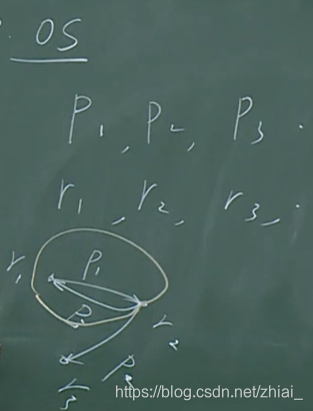 OS
P₁, P₂, P₃.
r₁, r₂, r₃, .
r₁ P₁
P₁ r₂
r₃ P₂
https://blog.csdn.net/zhiai_